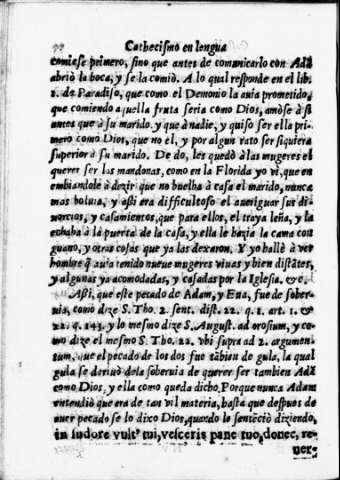 Cathecismo en lengua
comiese primero, sino que antes de comunicarlo con Adã
abriò la boca, y se la comiò. A lo qual responde en el lib.
1. de Paradiso, que como el Demonio la auia prometido,
que comiendo aquella fruta seria como Dios, amòse à si
antes que à su marido, y que à nadie, y quiso ser ella pri-
mero como Dios, que no el, y por algun rato ser siquiera
superior à su marido. De do, les quedò à las mugeres el
querer ser las mandonas, como en la Florida yo vi, que en
embiandole à dezir que no buelba à casa el marido, nunca
mas boluia, y assi era dificultoso el aueriguar sus di-
uorcios, y casamientos, que para ellos, el traya leña, y la
echaba à la puerta de la casa, y ella le hazia la cama con
guano, y otras cosas que ya las dexaron. Y yo hallè à ver
hombre q̃ auia tenido nueue mugeres viuas y bien distãtes,
y algunas ya acomodadas, y casadas por la Iglesia. &c.
Assi, que este pecado de Adam, y Eua, fue de sober-
uia, como dize S. Tho. 2. sent. dist. 22. q. 1. art. 1. &
22. q. 143. y lo mesmo dize S. August. ad orosium, y co-
mo dize el mesmo S. Tho. 22. vbi supra ad 2. argumen-
tum, que el pecado de los dos fue tãbien de gula, la qual
gula se deriuò dela soberuia de querer ser tambien Adã
como Dios, y ella como queda dicho. Porque nunca Adam
entendiò que era de tan vil materia, hasta que despues de
auer pecado se lo dixo Dios, quando lo sentẽciò diziendo,
in sudore vult' tui, vesceris pane tuo, donec, re-
uer-